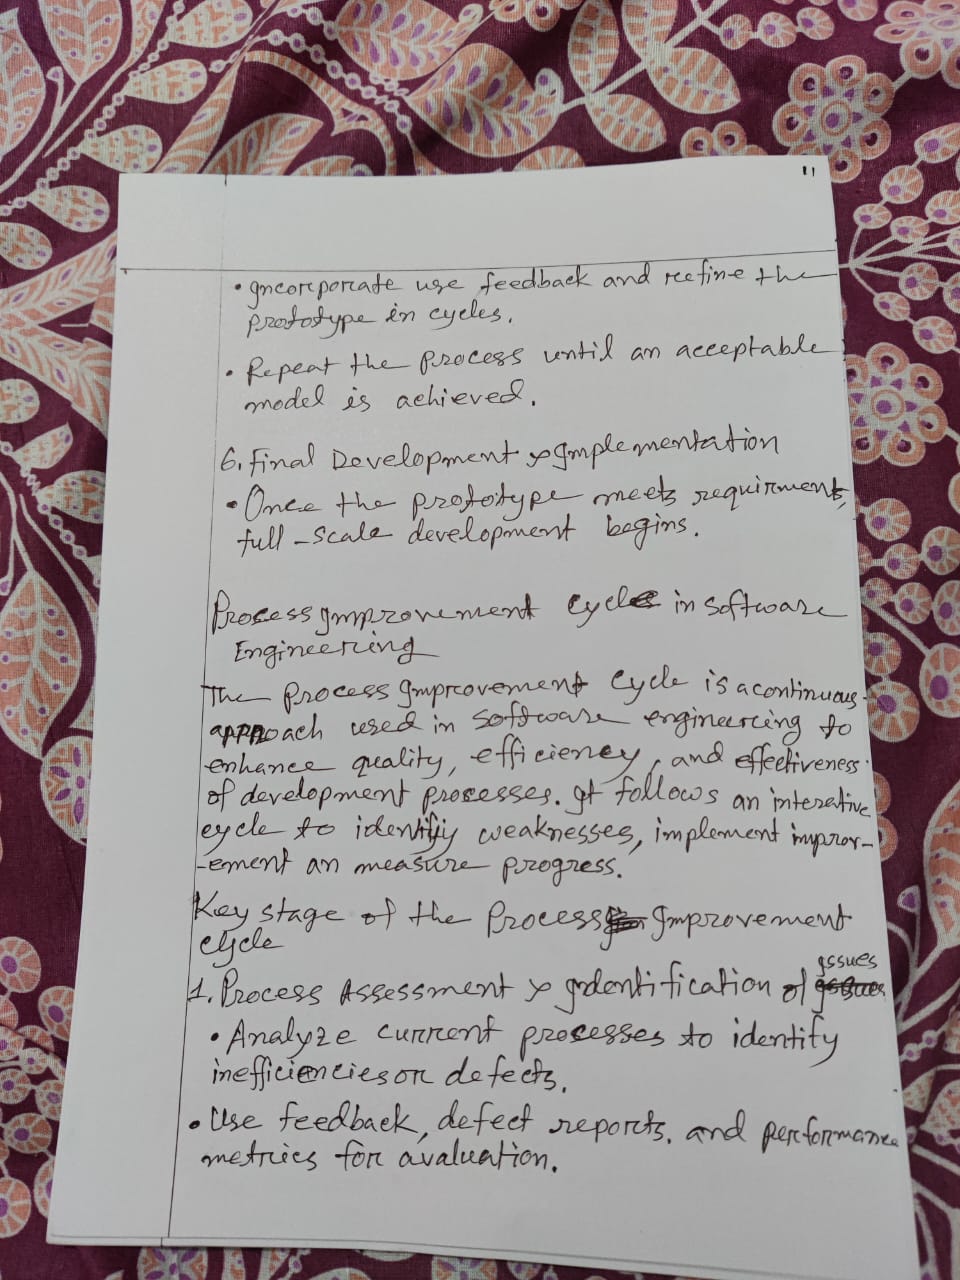 11
• Incorporate use feedback and refine the
prototype in cycles.
• Repeat the process until an acceptable
model is achieved.
6. Final Development & Implementation
• Once the prototype meets requirment,
full-scale development begins.
Process Improvement Cycle in Software
Engineering
The Process Improvement Cycle is a continuous
approach used in software engineering to
enhance quality, efficiency, and effectiveness
of development processes. It follows an interative
cycle to identify weaknesses, implement improv-
-ement an measure progress.
Key stage of the Process Improvement
cycle
issues
1. Process Assessment & Indentification of
• Analyze current processes to identify
inefficiencies or defects.
• Use feedback, defect reports, and performance
metrics for avaluation.